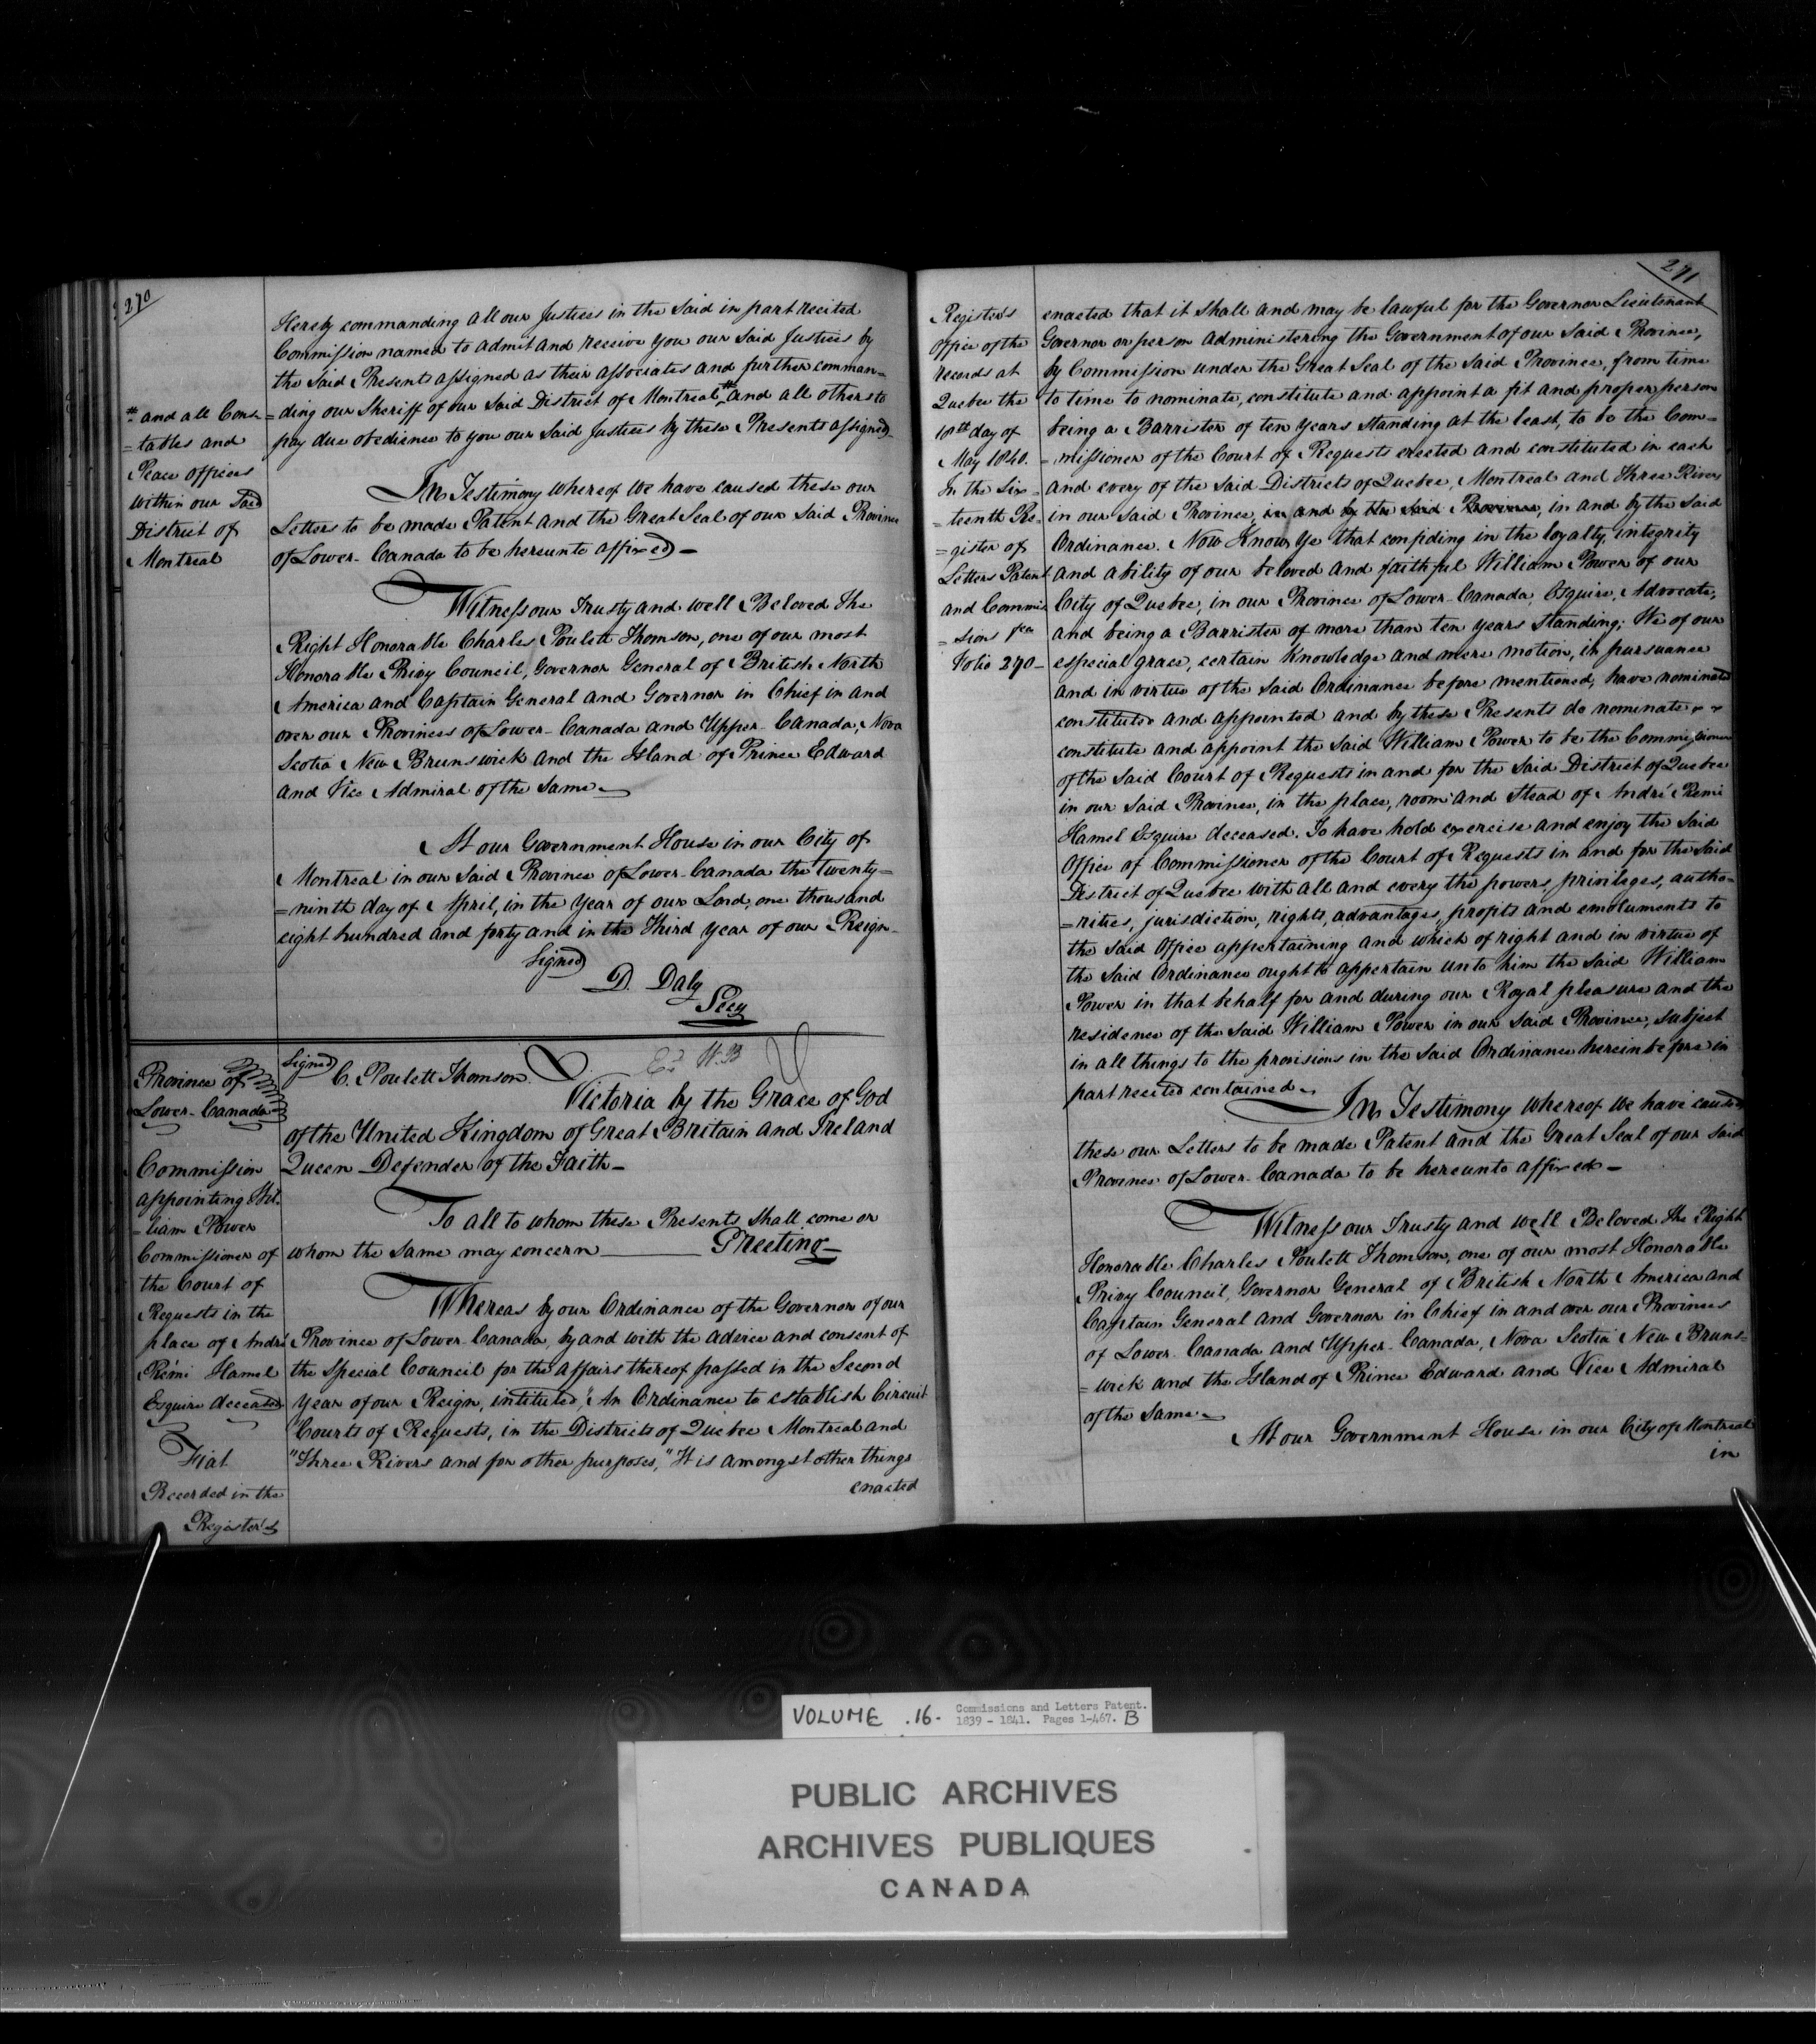 270
Hereby commanding all our Justices in the Said in part recited
Commission named to admit and receive you our Said Justices by
the Said Presents assigned as their associates and further comman=
=ding our Sheriff of our Said District of Montreal, # and all others to
pay due obedience to you our Said Justices by these Presents assigned.
# and all Cons=
=tables and
Peace officers
within our Said
District of
Montreal
In Testimony whereof we have caused these our
Letters to be made Patent and the Great Seal of our Said Province
of Lower-Canada to be hereunto affixed—
Witness our Trusty and well Beloved The
Right Honorable Charles Poulett Thomson, one of our most
Honorable Privy Council, Governor General of British North
America and Captain General and Governor in Chief in and
over our Provinces of Lower-Canada and Upper-Canada, Nova
Scotia New Brunswick and the Island of Prince Edward
and Vice Admiral of the Same—
At our Government House in our City of
Montreal in our Said Province of Lower-Canada the twenty=
=ninth day of April, in the year of our Lord, one thousand
eight hundred and forty and in the Third year of our Reign.
Signed
D. Daly
Secy
Province of
Lower-Canada
Signed C. Poulett Thomson
Victoria by the Grace of God
of the United Kingdom of Great Britain and Ireland
Queen Defender of the Faith—
Commission
appointing Wil=
=liam Power
Commissioner of
the Court of
Requests in the
place of André
Rémi Hamel
Esquire deceased
Fiat
Recorded in the
Register's
To all to whom these Presents shall come or
whom the same may concern —— Greeting—
Whereas by our Ordinance of the Governor of our
Province of Lower Canada, by and with the advice and consent of
the Special Council for the affairs thereof passed in the Second
year of our Reign, intituled, "An Ordinance to establish Circuit
"Courts of Requests, in the Districts of Quebec Montreal and
"Three Rivers and for other purposes," It is amongst other things
enacted
271
Register's
Office of the
records at
Quebec the
18th day of
May 1840.
In the Six=
=teenth Re=
=gister of
Letters Patent
and Commis
=sions
Folio 270—
enacted that it shall and may be lawful for the Governor Lieutenant
Governor or person administering the Government of our Said Province,
by Commission under the Great Seal of the Said Province, from time
to time to nominate, constitute and appoint a fit and proper person
being a Barrister of ten years Standing at the least, to be the Com=
=missioner of the Court of Requests erected and constituted in each
and every of the Said Districts of Quebec, Montreal and Three Rivers
in our Said Province, in and by the Said Province, in and by the Said
Ordinance. Now Know Ye that confiding in the loyalty, integrity
and ability of our beloved and faithful William Power of our
City of Quebec, in our Province of Lower-Canada, Esquire, Advocate,
and being a Barrister of more than ten years standing; We of our
especial grace, certain Knowledge and mere motion, in pursuance
and in virtue of the Said Ordinance before mentioned, have nominated
constituted and appointed and by these Presents do nominate
constitute and appoint the Said William Power to be the Commissioner
of the Said Court of Requests in and for the Said District of Quebec
in our Said Province, in the place, room and Stead of André Remi
Hamel Esquire deceased. To have hold exercise and enjoy the Said
Office of Commissioner of the Court of Requests in and for the Said
District of Quebec with all and every the powers, privileges, autho=
=rities, jurisdiction, rights, advantages, profits and emoluments to
the Said Office appertaining and which of right and in virtue of
the Said Ordinance ought to appertain unto him the Said William
Power in that behalf for and during our Royal pleasure and the
residence of the Said William Power in our Said Province, subject
in all things to the provisions in the Said Ordinance hereinbefore in
part recited contained—
In Testimony whereof we have caused
these our Letters to be made Patent and the Great Seal of our Said
Province of Lower-Canada to be hereunto affixed—
Witness our Trusty and well Beloved The Right
Honorable Charles Poulett Thomson, one of our most Honorable
Privy Council, Governor General of British North America and
Captain General and Governor in Chief in and over our Provinces
of Lower-Canada and Upper-Canada, Nova Scotia New Bruns=
=wick and the Island of Prince Edward and Vice Admiral
of the Same—
At our Government House in our City of Montreal
in
VOLUME .16. Commissions and Letters Patent.
1839 - 1841. Pages 1-467. B
PUBLIC ARCHIVES
ARCHIVES PUBLIQUES
CANADA